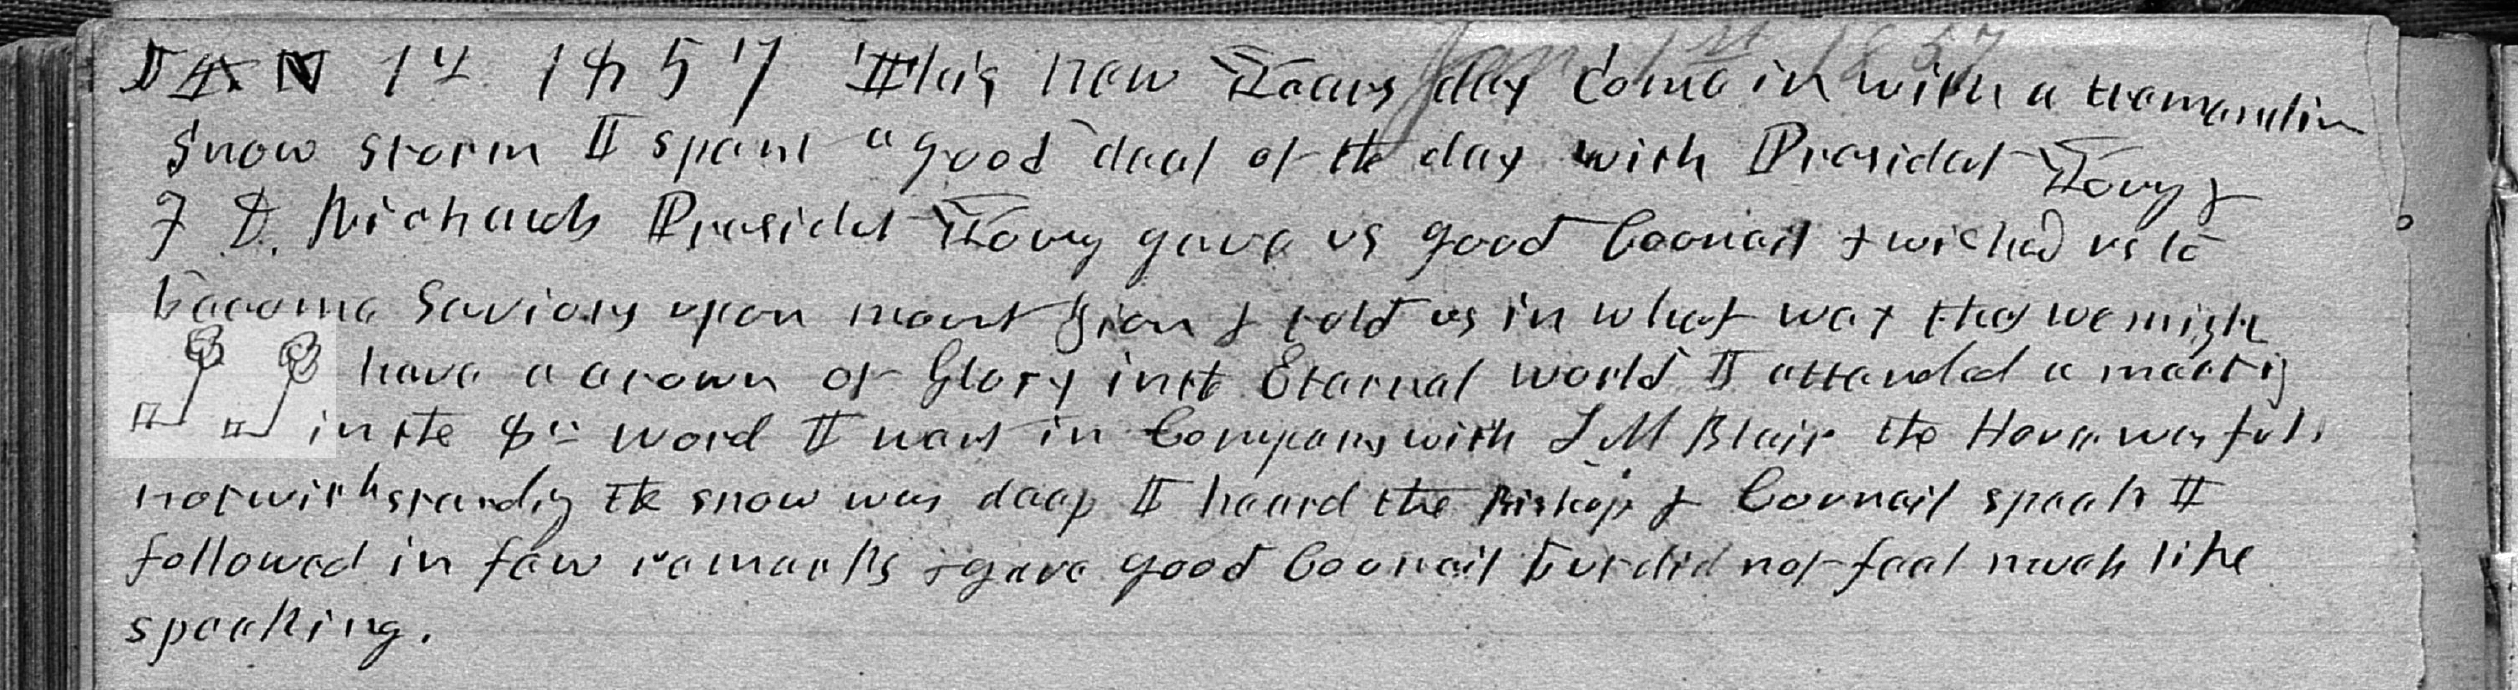 JAN 1st 1857 This new Years day Come in with a tremendin
Jan. 1st 1857
Snow storm I spent a good deal of the day with Presidet Young &
F D. Richards Presidet Young gave us good Councill & wished us to
become Saviors upon mount Zion & told us in what way that we might
have a crown of Glory in the Eternal world I attended a meetig
in the 8th Word I went in Company with S M Blair the House was full
notwithstandig the snow was deep I heard the Bishop & Councail speak I
followed in few remarks & gave good Councail but did not feel much like
speaking.